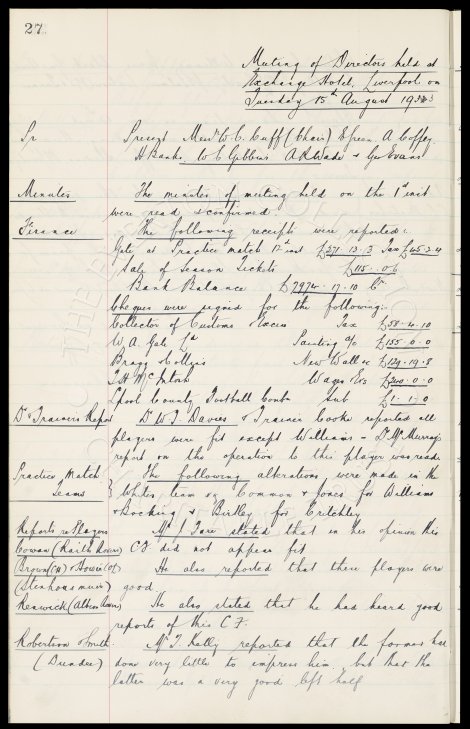 27
Meeting of Directors held at
Exchange Hotel, Liverpool on
Tuesday 15th August 1933
Pr Present Messrs W.C. Cuff (Chair) E. Green A. Coffey
H Banks W C Gibbins A R Wade & Geo Evans
Minutes The minutes of meeting held on the 1st inst
were read & confirmed.
Finance The following receipts were reported:-
Gate at Practice match 12th inst £271.13.3 Tax £45.2.4
Sale of Season Tickets £115.0.6
Bank Balance £7974.17.10 Cr
Cheques were signed for the following:-
Collector of Customs & Excise Tax £58.4.10
W. A. Gale Ld Painting a/c £155.0.0
Bragg Wall £129.19.8
T.H. McIntosh Wages Exs £200.0.0
Lpool County Football Comb. Sub £1.1.0
Drs & Trainers Report Dr W. J. Davies & Trainer Cooke reported all
players were fit except Williams - McMurray
report on the operation to this player was read.
Practice Match The following alterations were made in the
Teams Whites team Common & Jones for Williams
& Bocking & Birtley for Critchley
Reports re Players Mr J Fare stated that in his opinion this
Cowan (Raith Rovers) C.F. did not appear fit
Brown (CH) & Howie (OL) He also reported that these players were
(Stenhousemuir) good
Renwick (Albion Rovers) He also stated that he had heard good
reports of this C.F.
Robertson & Smith Mr T. Kelly reported that the former had
(Dundee) done very little to impress him, but that the
latter was a very good left half